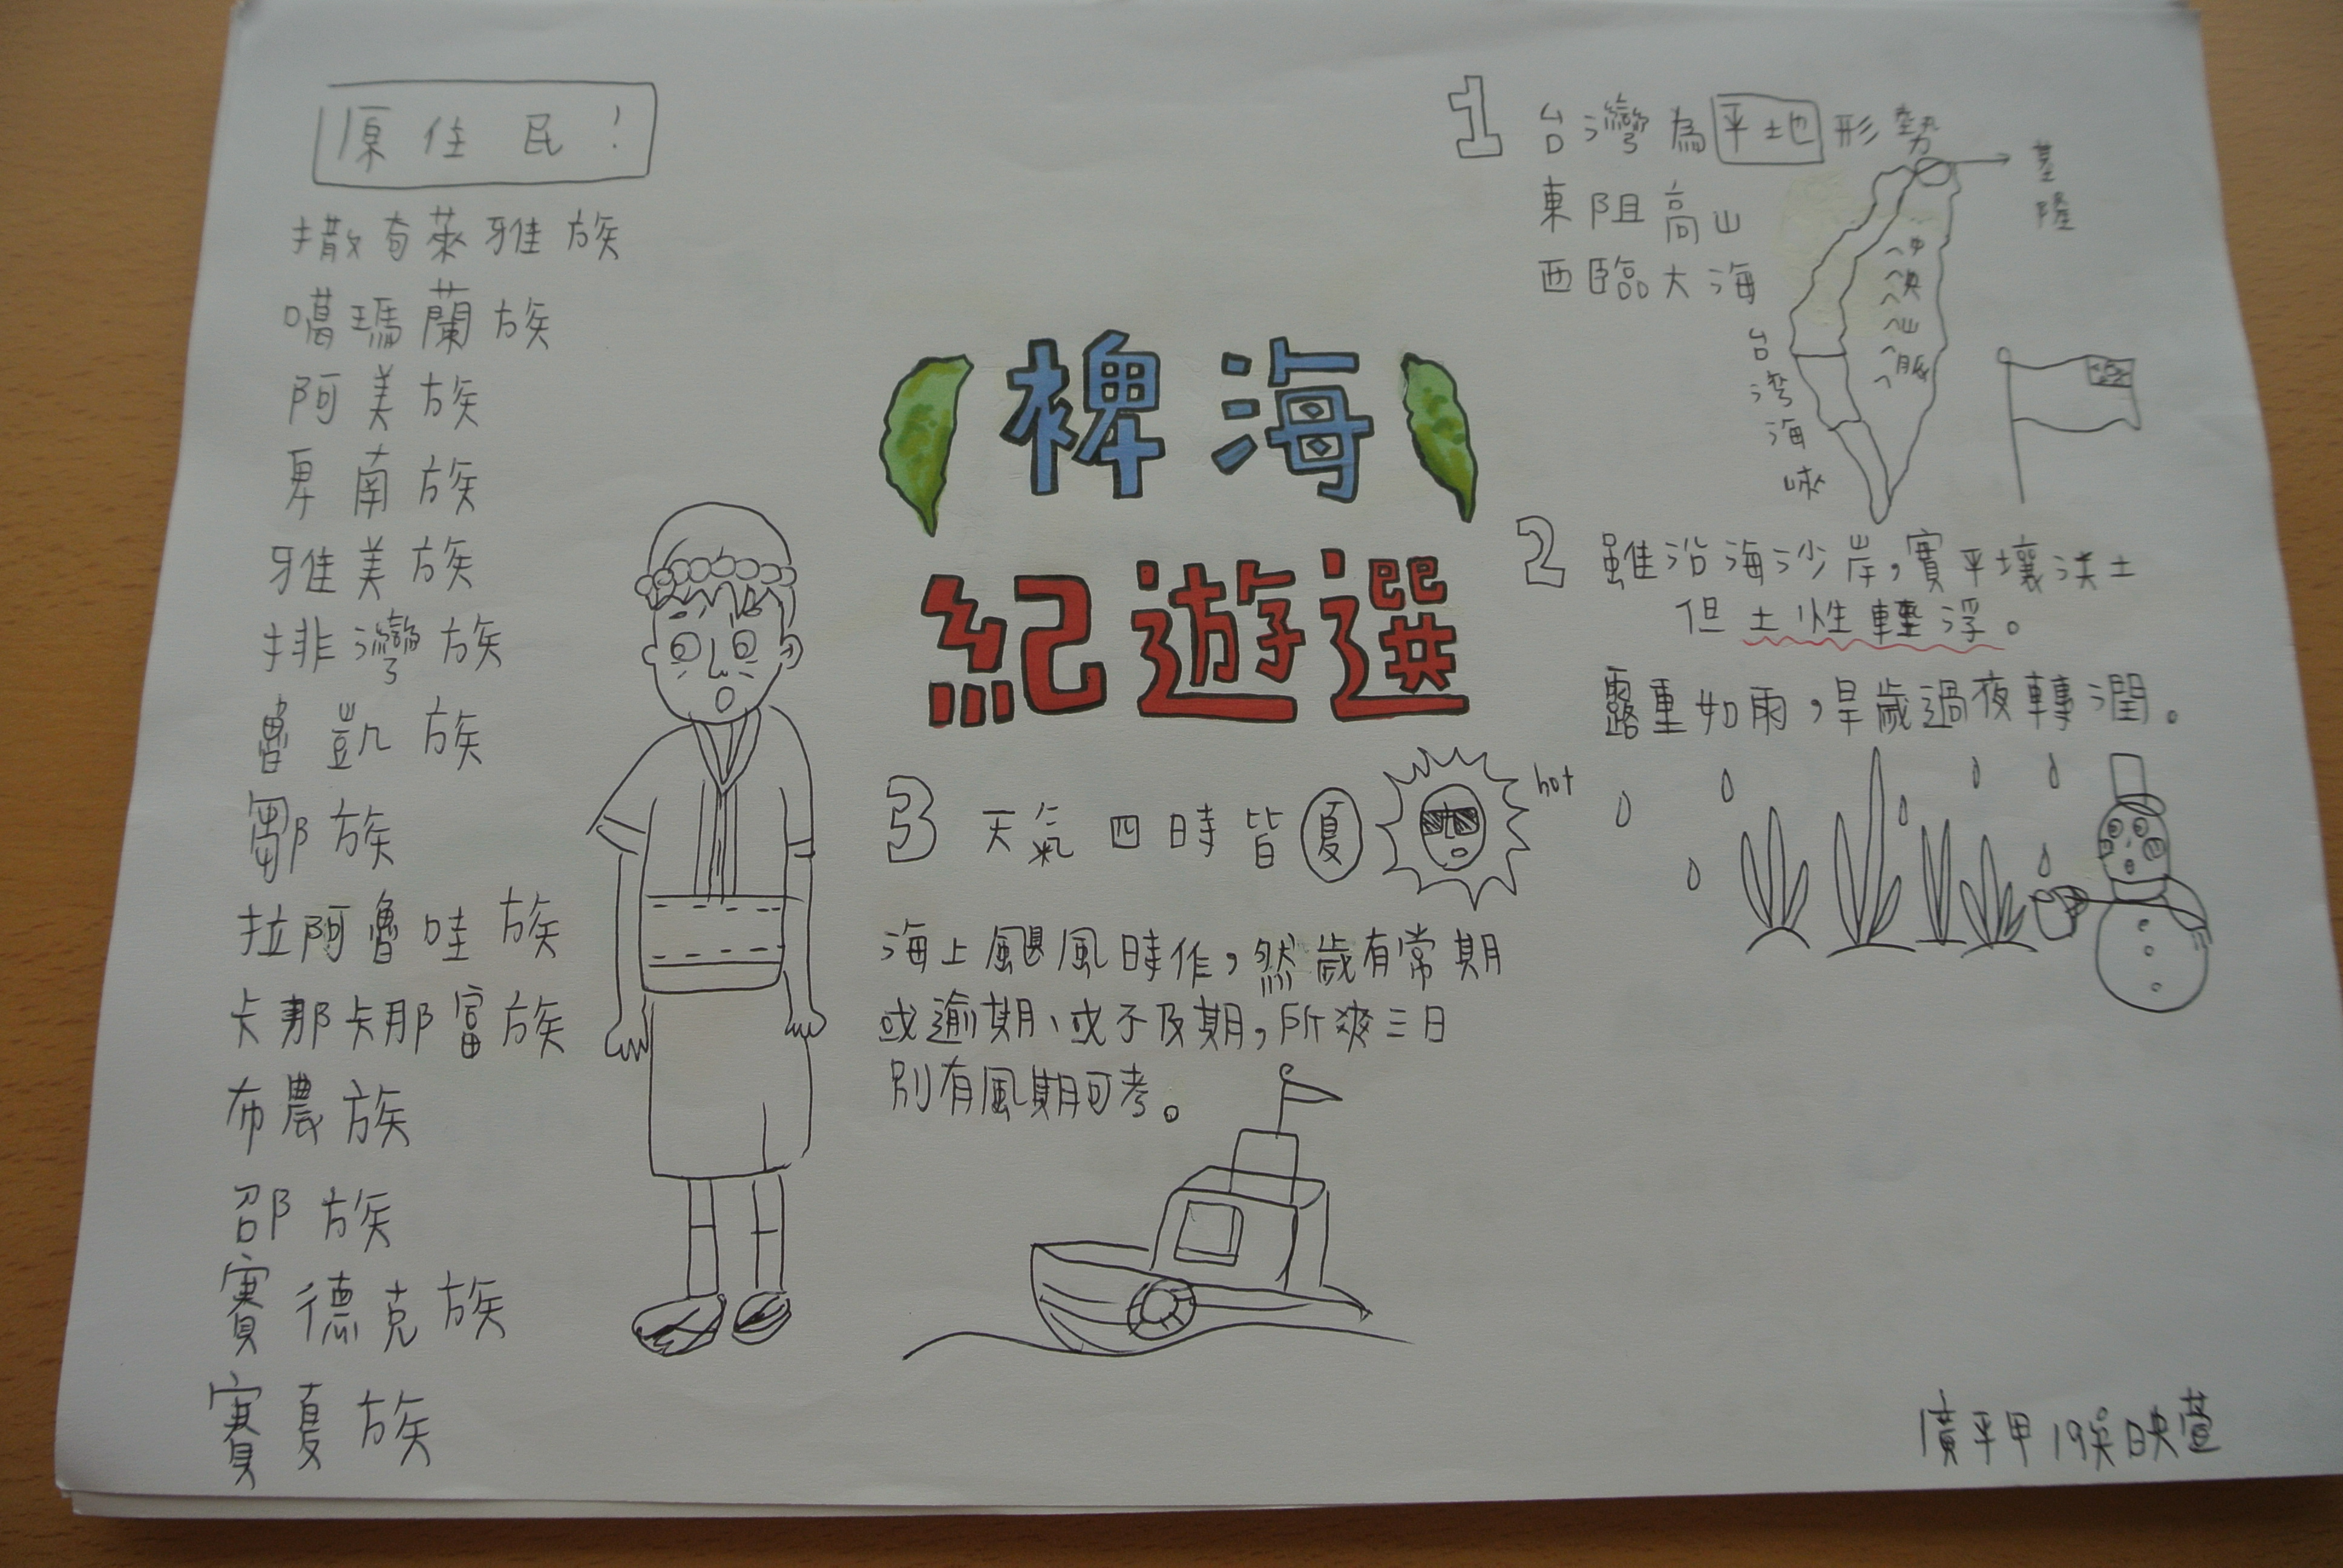 原住民!
撒奇萊雅族
噶瑪蘭族
阿美族
卑南族
雅美族
排灣族
魯凱族
鄒族
拉阿魯哇族
卡那卡那富族
布農族
邵族
賽德克族
賽夏族
裨海
紀遊選
1 台灣為平地形勢
東阻高山
西臨大海
基隆
中央山脈
台灣海峽
2 雖沿海沙岸,實平壤沃土
但土性輕浮。
露重如雨,旱歲過夜轉潤。
3 天氣四時皆夏
hot
海上颶風時作,然歲有常期
或逾期、或不及期,所爽三日
別有風期可考。
廣平甲 19吳映萱